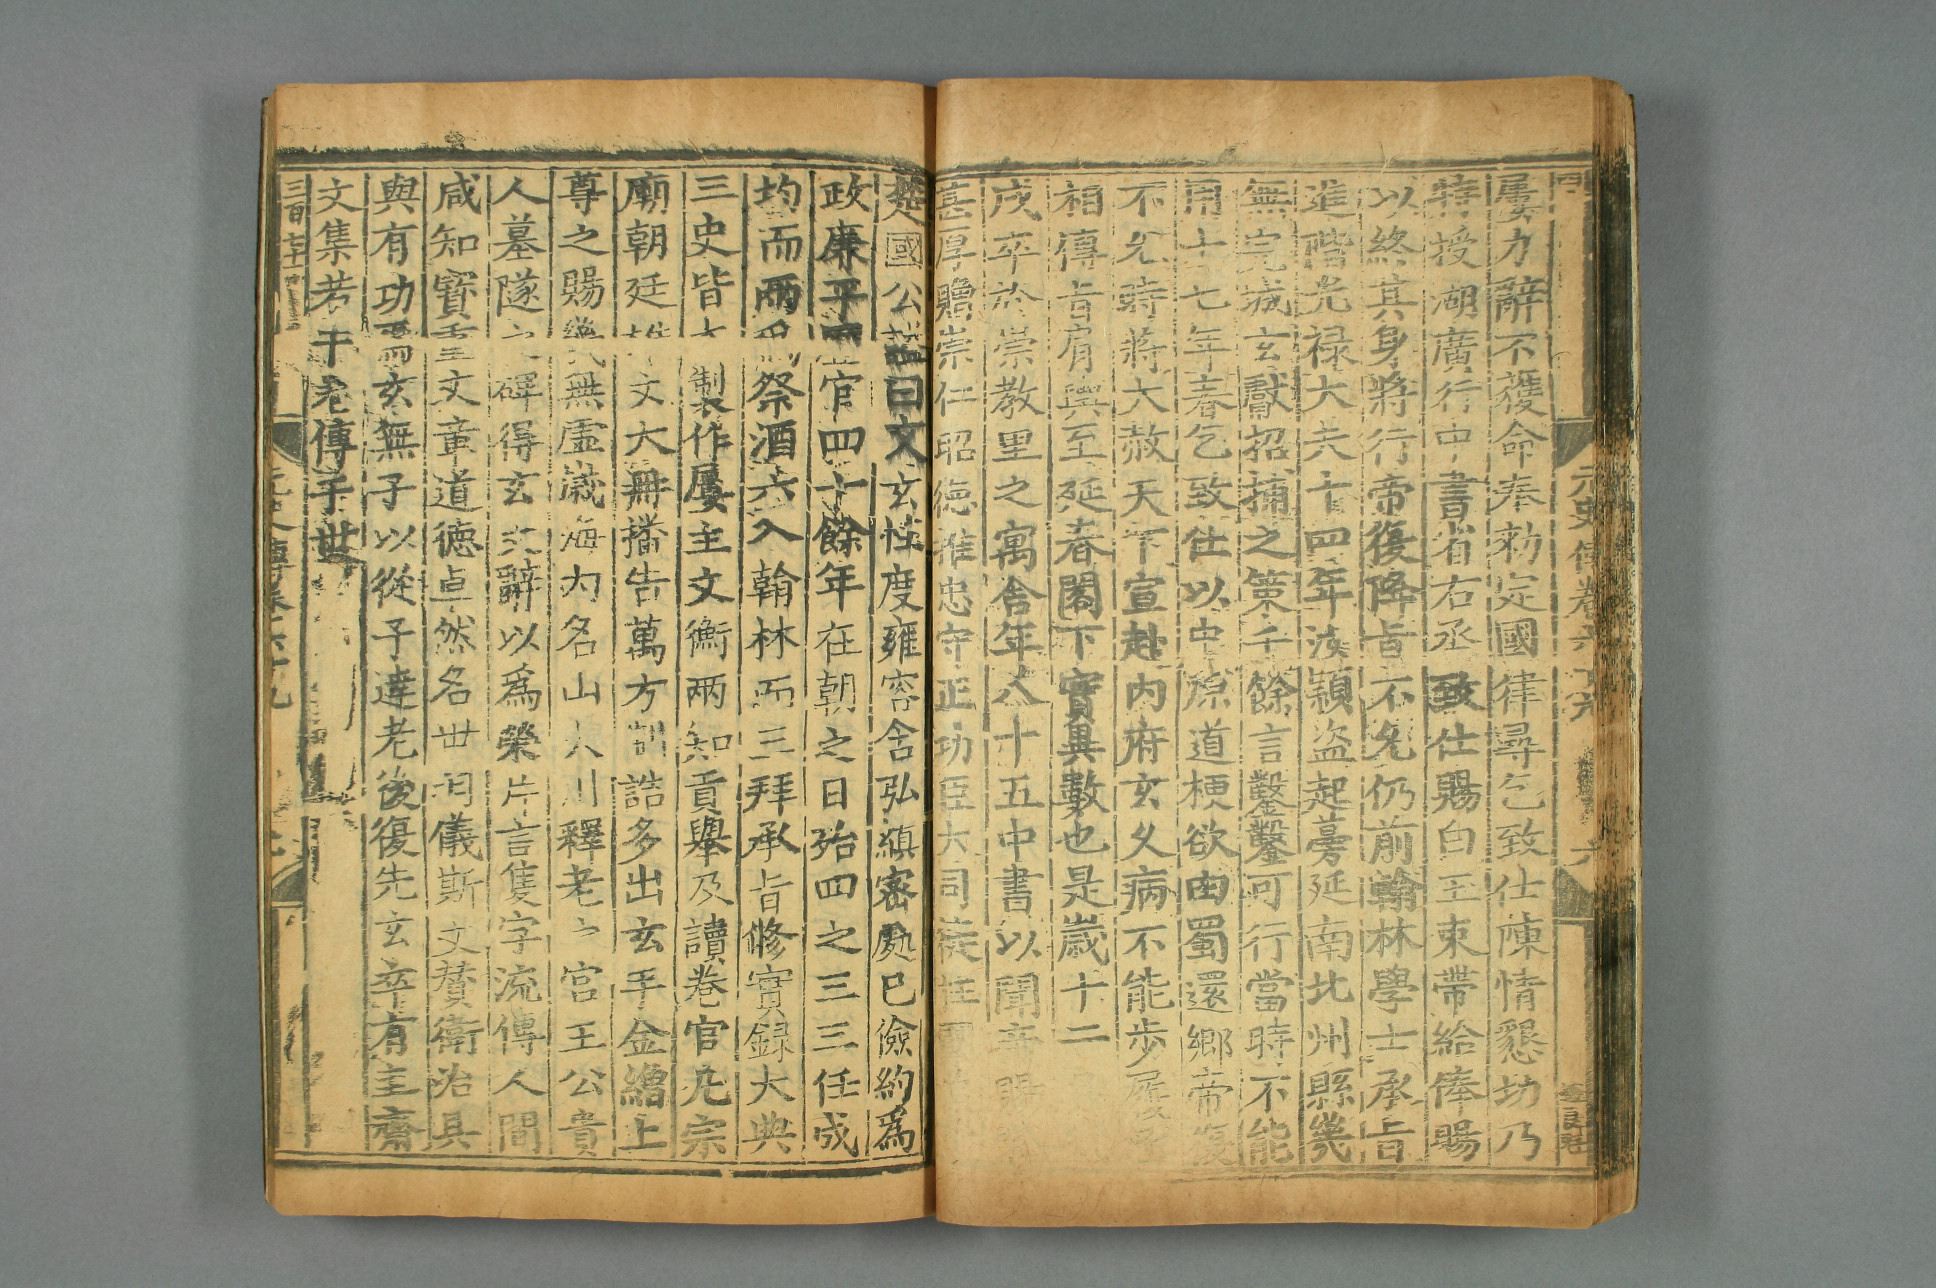 屢力辭不獲命奉勑定國律尋乞致仕陳情懇切乃
特授湖廣行中書省右丞致仕賜白玉束帶給俸賜
以終其身將行帝復降旨不允仍前翰林學士承旨
進階光祿大夫十四年汝潁盜起蔓延南北州縣幾
無完城玄獻招捕之策千餘言鑿鑿可行當時不能
用十七年春乞致仕以中原道梗欲由蜀還鄉帝復
不允時將大赦天下宣赴內府玄久病不能步履
相傳旨肩輿至延春閣下實異數也是歲十二
戊卒於崇教里之寓舍年八十五中書以聞帝賜
甚厚贈崇仁昭德推忠守正功臣大司徒柱國
楚國公謚曰文玄性度雍容含弘縝密處己儉約爲
政廉平官四十餘年在朝之日殆四之三三任成
均而兩爲祭酒六入翰林而三拜承旨修實録大典
三史皆大製作屢主文衡兩知貢舉及讀卷官凡宗
廟朝廷文大冊播告萬方制誥多出玄手金繒上
尊之賜幾無虛歲海內名山大川釋老之宮王公貴
人墓隧之碑得玄文辭以爲榮片言隻字流傳人間
咸知寶重文章道德卓然名世羽儀斯文贊衛治具
與有功焉玄無子以從子達老後復先玄卒有圭齋
文集若干卷傳于世
元史傳卷六十九